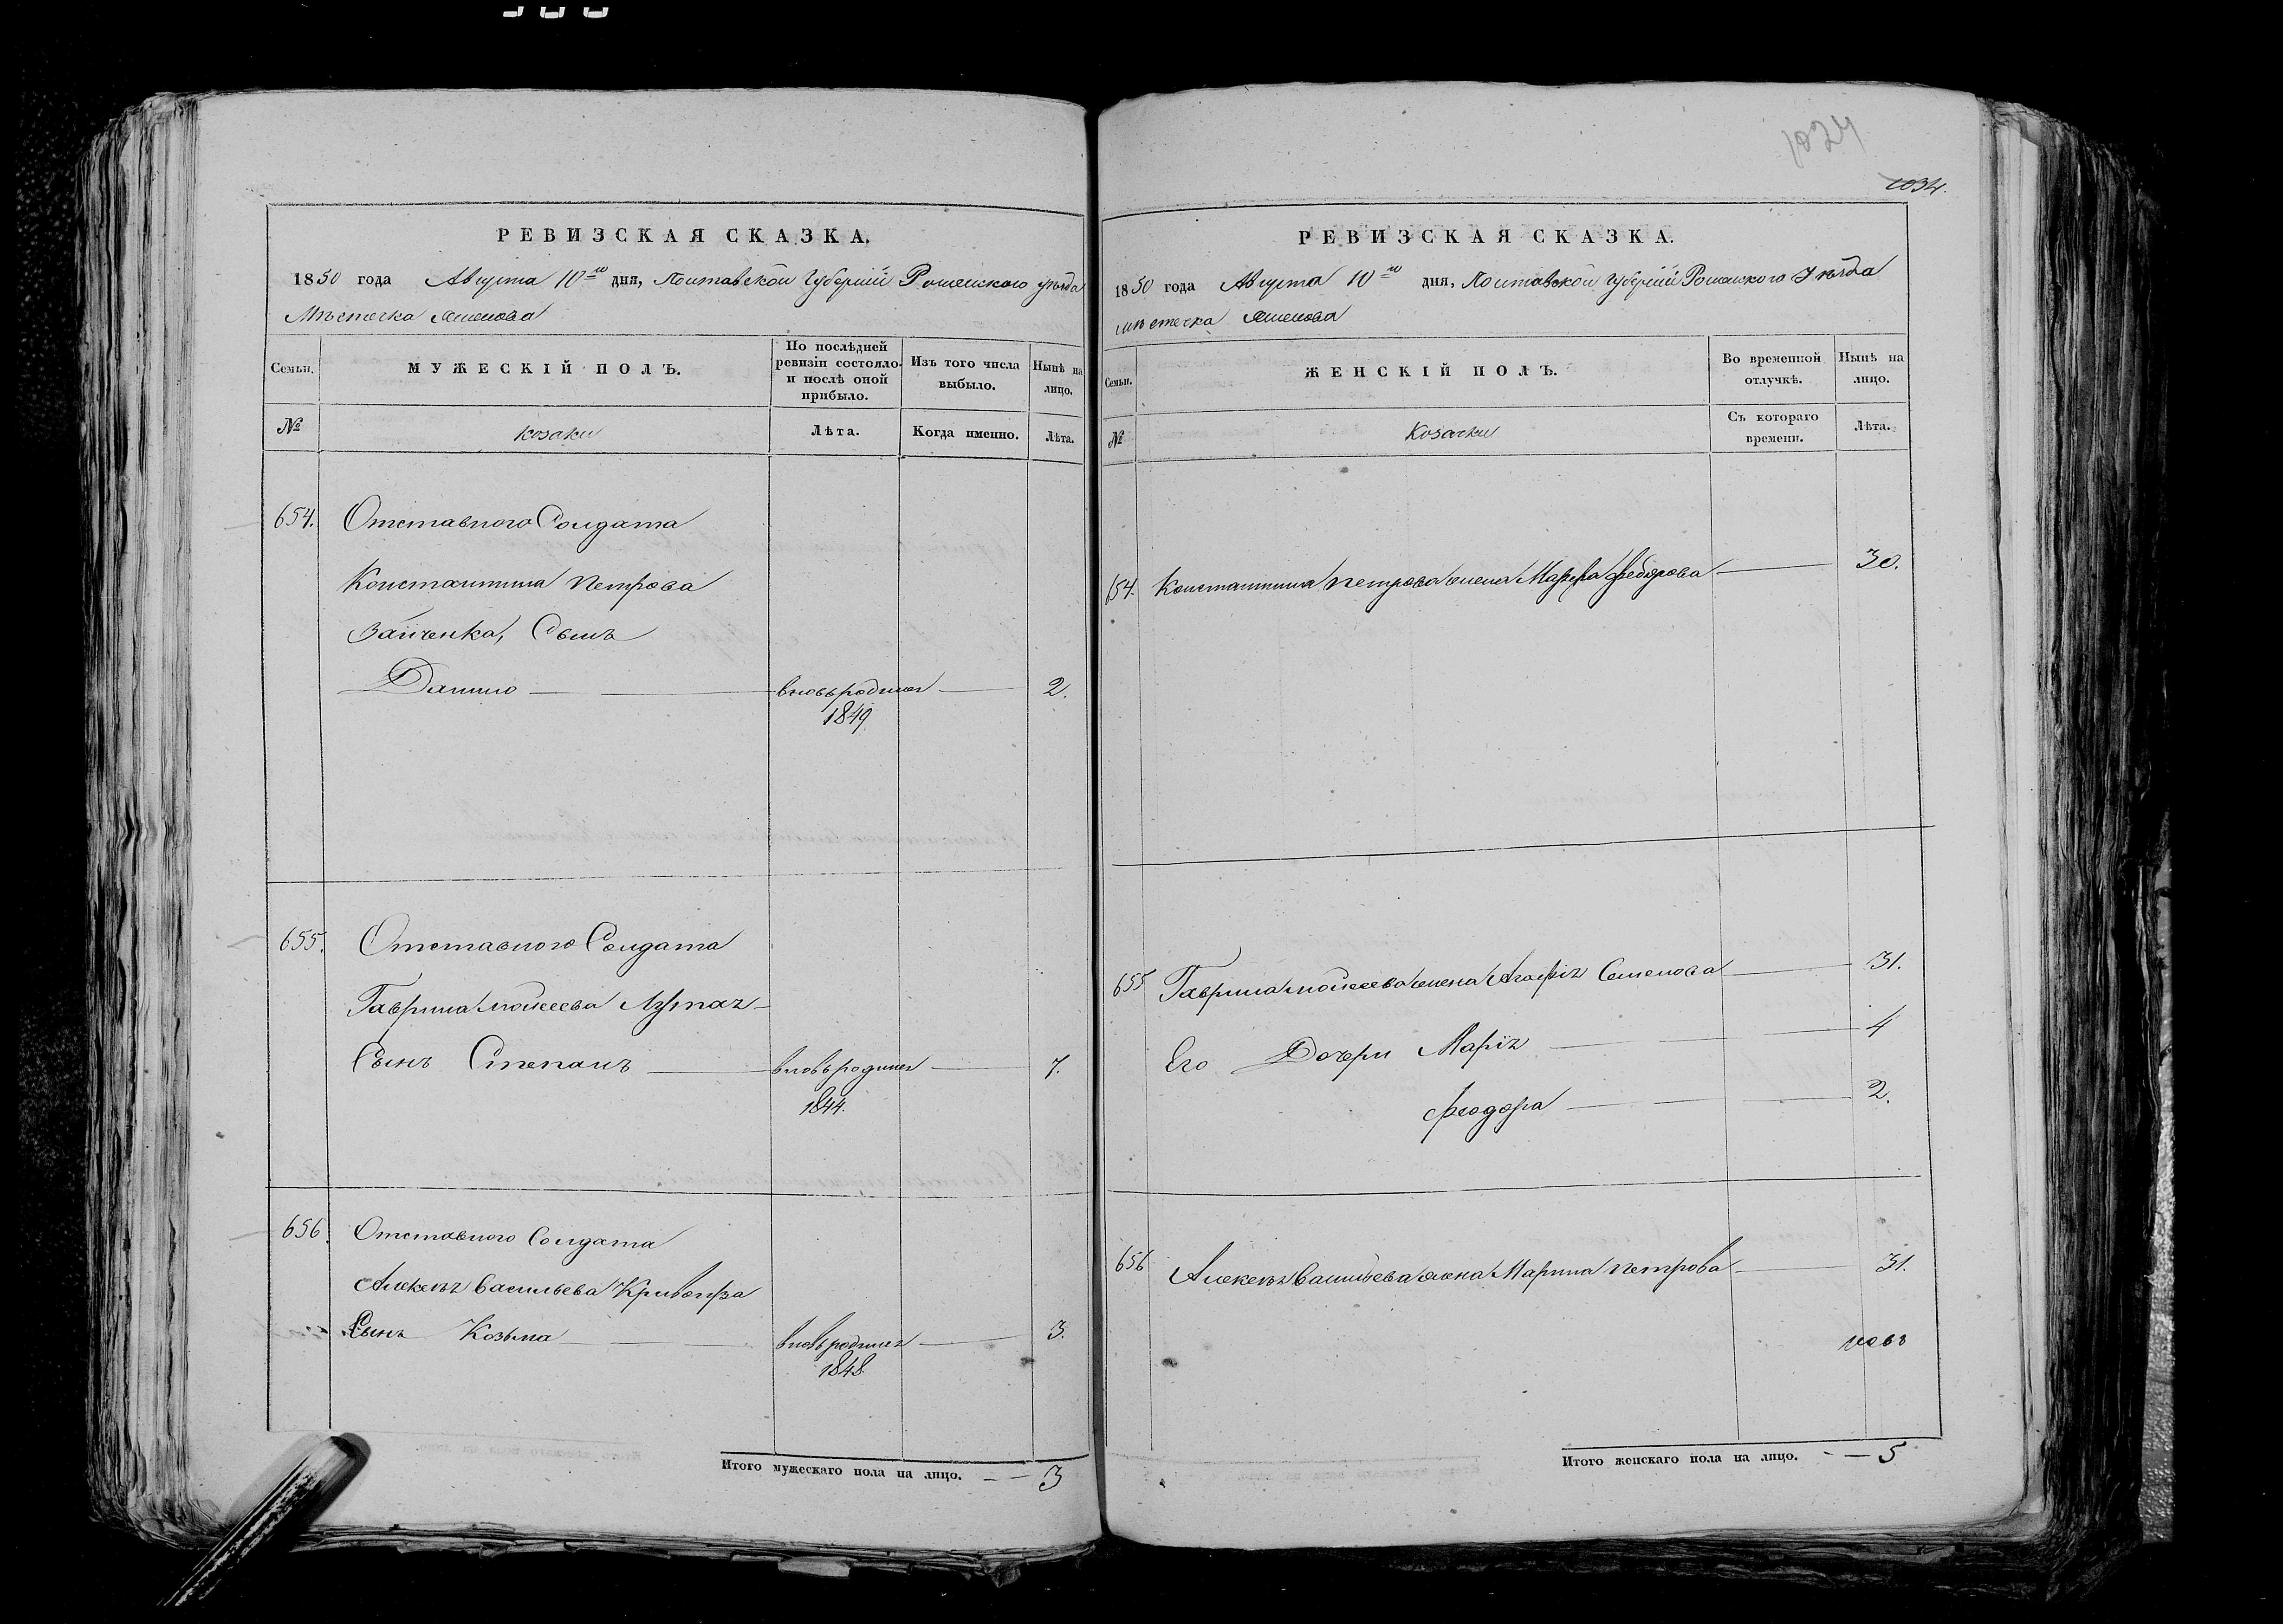 РЕВИЗСКАЯ СКАЗКА.
1850 года Августа 10го дня, Полтавской Губерніи Роменского уѣзда
Мѣстечка
Семьи.
МУЖЕСКІЙ ПОЛЪ.
По послѣдней ревизіи состояло и послѣ оной прибыло.
Изъ того числа выбыло.
Нынѣ на лицо.
№
козаки
Лѣта.
Когда именно.
Лѣта.
654. Отставного Солдата
Константина Петрова
Зайченка, Сынъ
Данило — вновьродился — 2.
1849
655. Отставного Солдата
Гаврила Мойсеева
Сынъ Степанъ — вновьродился — 7.
1844.
656. Отставного Солдата
Алексѣя Васильева
Сынъ Козьма — вновьродился — 3.
1848
Итого мужескаго пола на лицо. — — 3
1024
1034.
РЕВИЗСКАЯ СКАЗКА.
1850 года Августа 10го дня, Полтавской Губерніи Роменского Уѣзда
мѣстечка
Семьи.
ЖЕНСКІЙ ПОЛЪ.
Во временной отлучкѣ.
Нынѣ на лицо.
№
Козачки
Съ котораго времени.
Лѣта.
654. Константина Петрова жена Марфа Федорова — 30.
655 Гаврила Мойсеева жена Агафія Семенова — 31.
Его Дочери Марія — 4
Феодора — 2.
656 Алексѣя Васильева жена Марина Петрова — 31.
Итого женскаго пола на лицо. — — 5